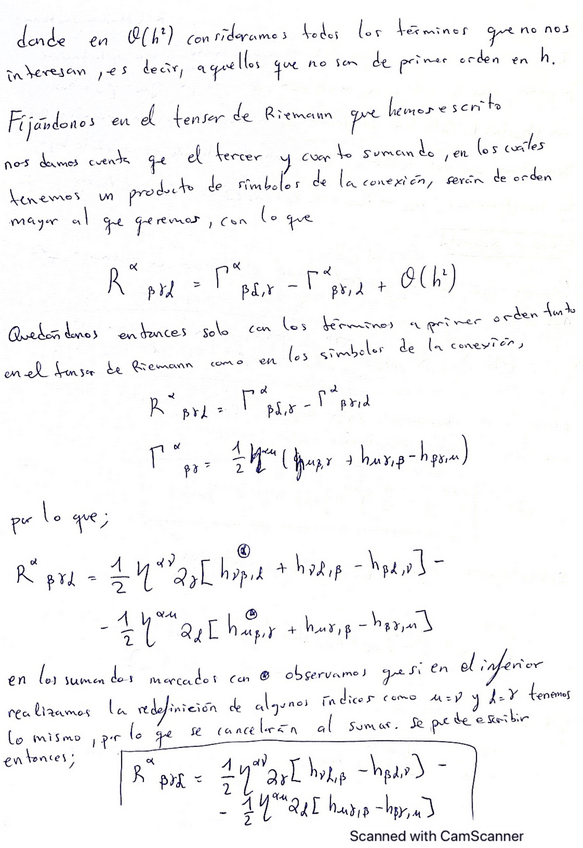 donde en O(h²) consideramos todos los términos que no nos
interesan, es decir, aquellos que no son de primer orden en h.
Fijándonos en el tensor de Riemann que hemos escrito
nos damos cuenta qe el tercer y cuarto sumando, en los cuáles
tenemos un producto de símbolos de la conexión, serán de orden
mayor al qe qeremos, con lo que
R^α_{βγδ} = Γ^α_{βδ,γ} - Γ^α_{βγ,δ} + O(h²)
Quedándonos entonces solo con los términos a primer orden tanto
en el tensor de Riemann como en los símbolos de la conexión,
R^α_{βγδ} = Γ^α_{βδ,γ} - Γ^α_{βγ,δ}
Γ^α_{βγ} = 1/2 η^{αμ} (h_{μβ,γ} + h_{μγ,β} - h_{βγ,μ})
por lo que;
R^α_{βγδ} = 1/2 η^{αν} ∂_γ [h_{νβ,δ} + h_{νδ,β} - h_{βδ,ν}] -
- 1/2 η^{αμ} ∂_δ [h_{μβ,γ} + h_{μγ,β} - h_{βγ,μ}]
en los sumandos marcados con observamos que si en el inferior
realizamos la redefinición de algunos índices como μ=ν y δ=γ tenemos
lo mismo, por lo qe se cancelarán al sumar. Se puede escribir
entonces;
R^α_{βγδ} = 1/2 η^{αν} ∂_γ [h_{νδ,β} - h_{βδ,ν}] -
- 1/2 η^{αμ} ∂_δ [h_{μγ,β} - h_{βγ,μ}]
Scanned with CamScanner